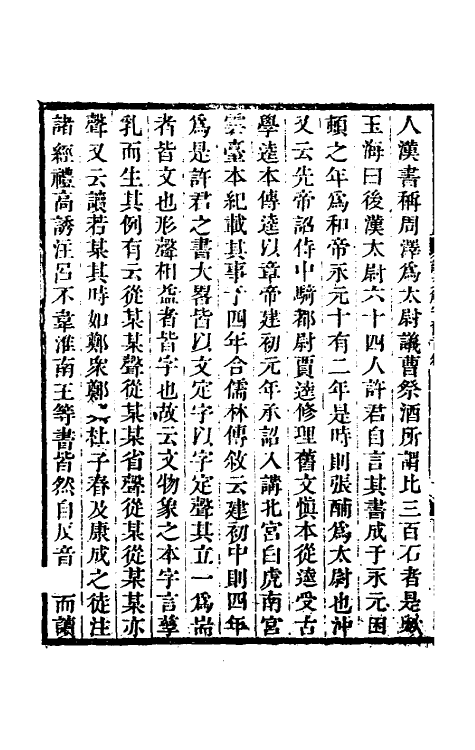 人漢書稱周澤為太尉議曹祭酒所謂比三百石者是歟
玉海曰後漢太尉六十四人許君自言其書成于永元困
頓之年為和帝永元十有二年是時則張酺為太尉也沖
又云先帝詔侍中騎都尉賈逵修理舊文愼本從逵受古
學逵本傳逵以章帝建初元年承詔入講北宮白虎南宮
雲臺本紀載其事于四年合儒林傳敘云建初中則四年
為是許君之書大畧皆以文定字以字定聲其立一為耑
者皆文也形聲相益者皆字也故云文物象之本字言孳
乳而生其例有云從某某聲從某某省聲從某從某某亦
聲又云讀若某其時如鄭衆鄭杜子春及康成之徒注
諸經禮高誘注呂不韋淮南王等書皆然自反音 而讀